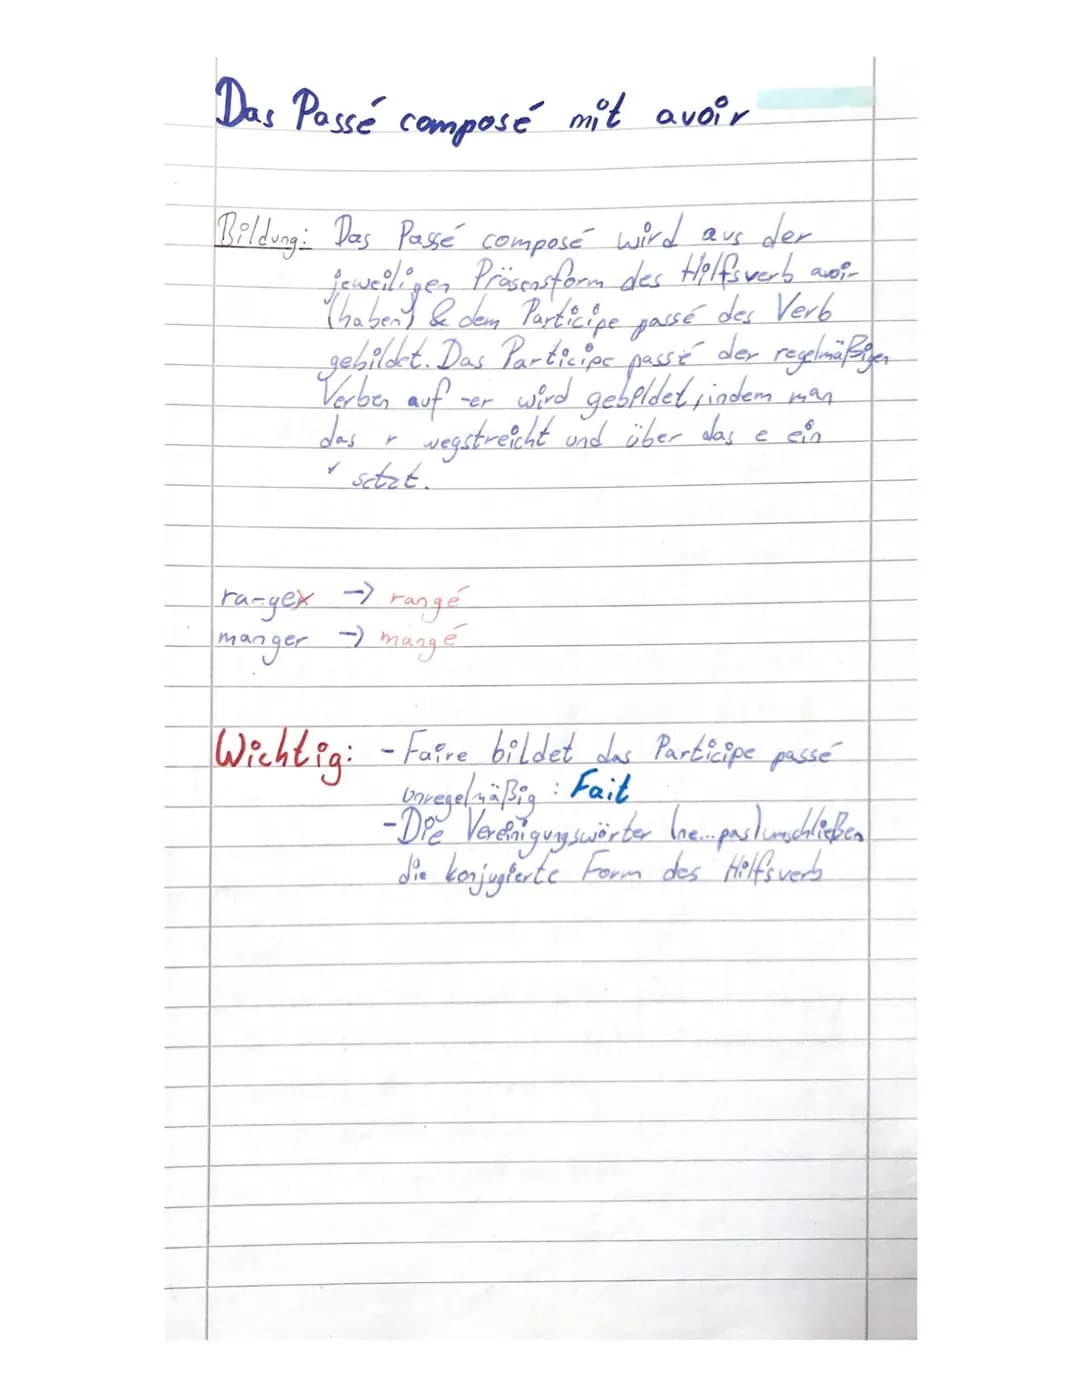 Das Passé composé mit avoir
Bildung: Das Passé composé wird aus der
jeweiligen Präsensform des Hilfsverb avoir
(haben) & dem Participe passé des Verb
gebildet. Das Participe passé der regelmäßigen
Verben auf -er wird gebildet, indem man
das r wegstreicht und über das e ein
´ setzt.
ranger → rangé
manger → mangé
Wichtig: - Faire bildet das Participe passé
unregelmäßig : Fait
- Die Vereinigungswörter (ne...pas) umschließen
die konjugierte Form des Hilfsverb